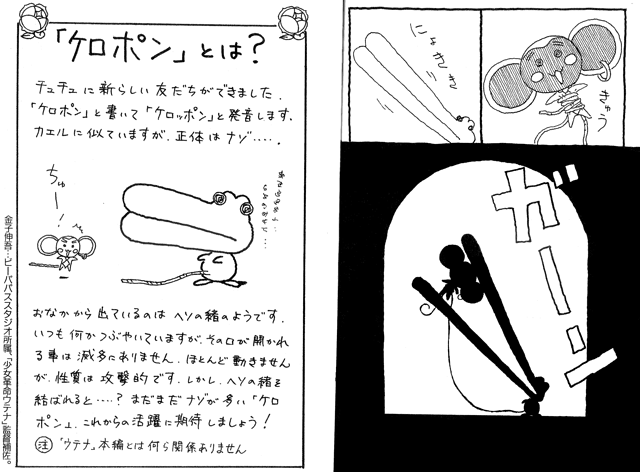 「ケロポン」とは?
チュチュに新らしい友だちができました.
「ケロポン」と書いて「ケロッポン」と発音します.
カエルに似ていますが.正体はナゾ‥‥.
ちゅー!
おなかから出ているのはヘソの緒のようです.
いつも何かつぶやいていますが.その口が開かれ
る事は滅多にありません.ほとんど動きません
が.性質は攻撃的です.しかし.ヘソの緒を
結ばれると‥‥?まだまだナゾが多い「ケロ
ポン」.これからの活躍に期待しましょう!
注「ウテナ」本編とは何ら関係ありません
金子伸吾…ビーパパススタジオ所属、「少女革命ウテナ」監督補佐。
ガーン